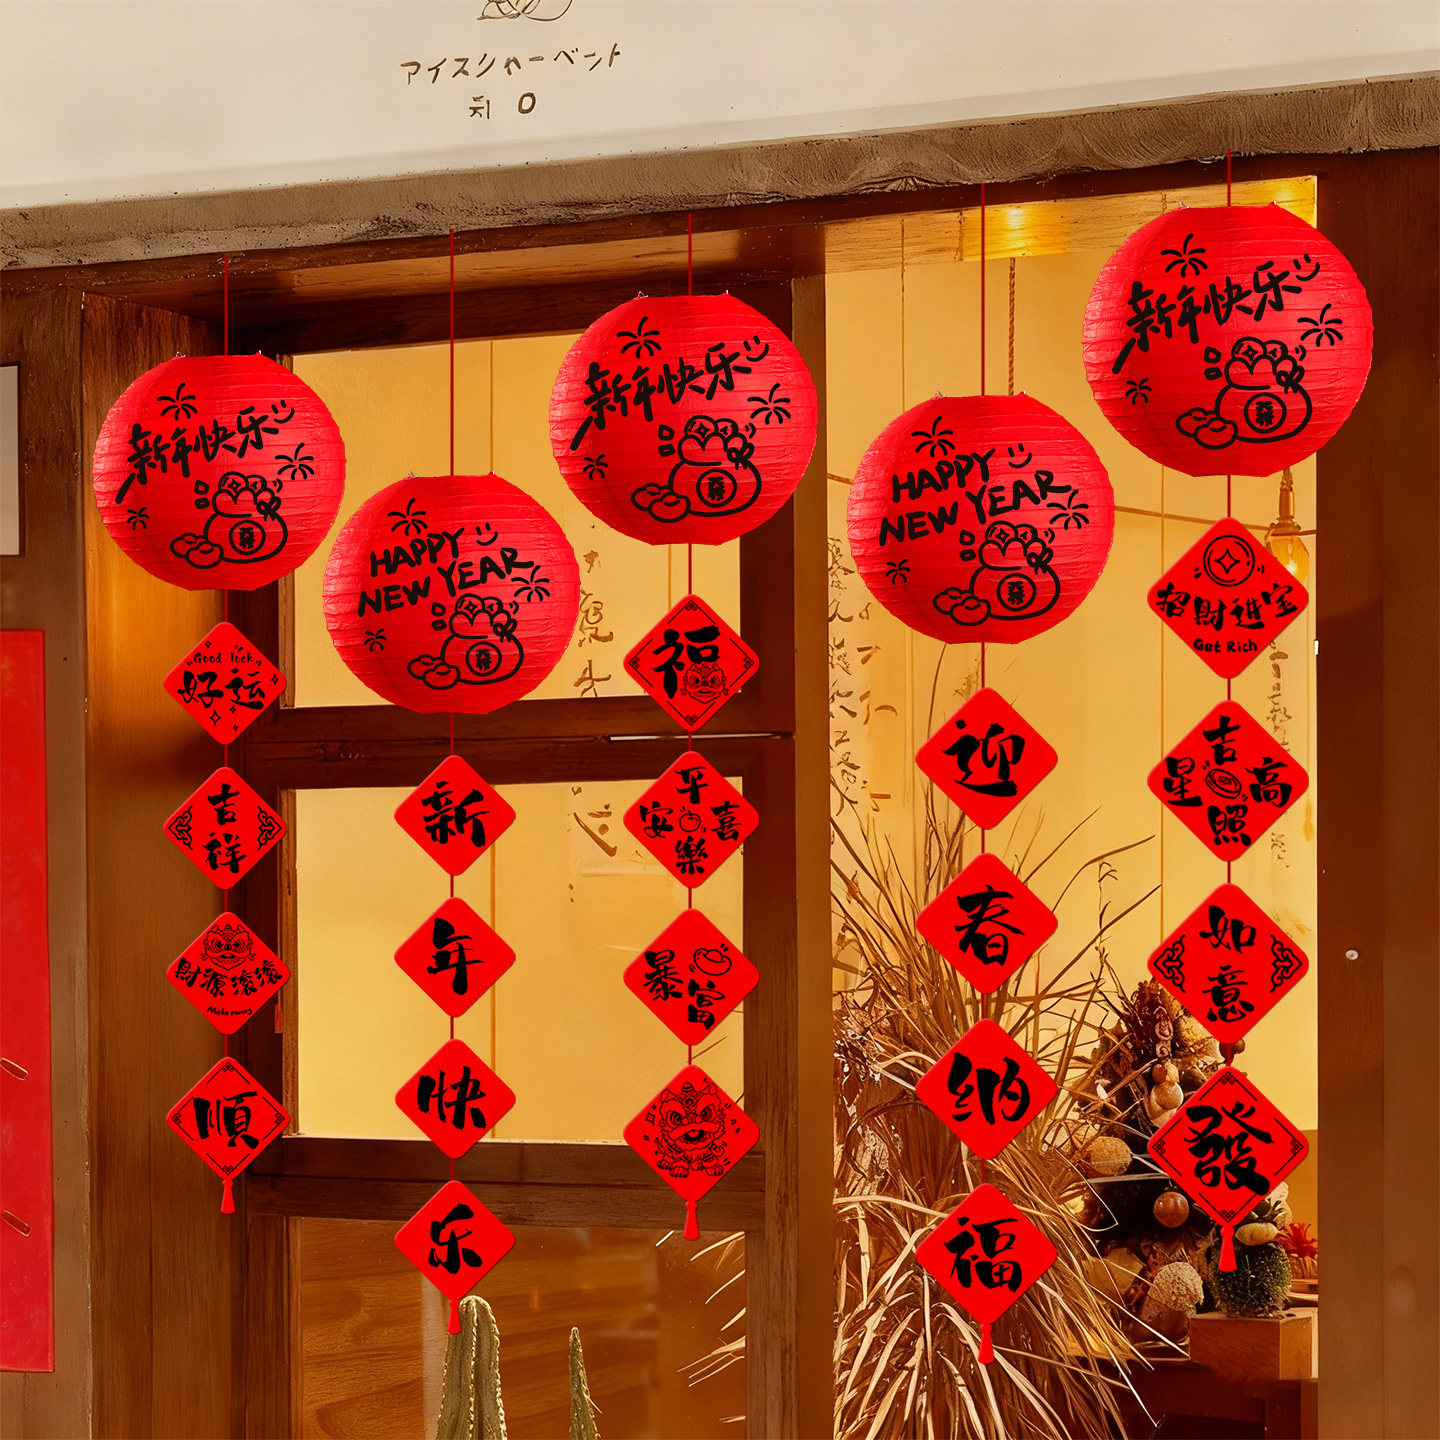 アイスシャーベット
新年快乐
發
Good luck
好运
吉祥
財源滚滚
Make money
順
HAPPY
NEW YEAR
發
新
年
快
乐
新年快乐
發
福
平安喜樂
暴富
HAPPY
NEW YEAR
發
迎
春
纳
福
新年快乐
發
招財進宝
Get Rich
吉星高照
如意
發